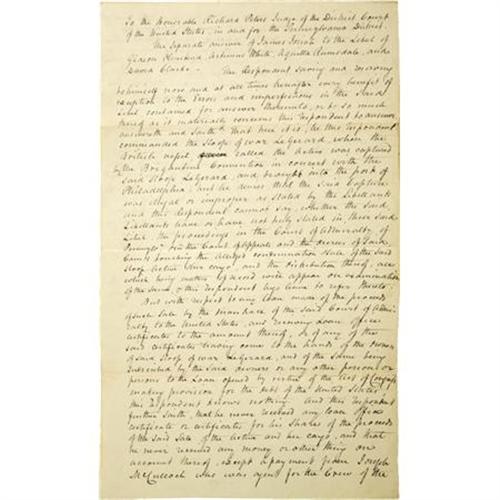 To the Honorable Richard Peters Judge of the District Court
of the United States, in and for the Pennsylvania District.
The separate answer of James Josiah to the Libel of
Gideon Olmstead, Artimus White, Aquilla Rumsdale, and
David Clarke.
The Respondent saving and reserving
to himself now and at all times hereafter every benefit of
exception to the Errors and imperfections in the said
Libel contained for answer thereunto, or to so much
thereof as it materially concerns this respondent to answer
answereth and saith That true it is, he this respondent
commanded the Sloop of war LeGerard, when the
British vessel called the Active was captured
by the Brigantine Convention in concert with the
said Sloop LeGerard, and brought into the port of
Philadelphia; but he denies that the said Capture
was illegal or improper as stated by the Libellants
and this respondent cannot say, whether the said
Libellants have or have not truly stated in their said
Libel the proceedings in the Court of Admiralty of
the Court of Appeals and the decrees of said
Courts touching the alledged condemnation & sale of the said
Sloop Active & her cargo, and the distribution thereof, all
which being matters of record will appear on examination
of the same, & this respondent begs leave to refer thereto.
But with respect to any Loan made of the proceeds
of such Sale by the marshall of the said Court of Admi-
ralty to the United States, and receiving Loan office
Certificates to the amount thereof, or of any of the
said certificates having come to the hands of the owners
of said Sloop of war LeGerard, and of the same being
subscribed by the said owners or any other person or
persons to the Loan opened by virtue of the act of Congress
making provision for the debt of the United States
this respondent knows nothing. And this respondent
further saith, that he never received any loan office
certificate or certificates for his shares of the proceeds
of the said Sale of the Active and her cargo, and that
he never received any money or other thing on
account thereof, except a payment from Joseph
McCulloch who was agent for the Crew of the